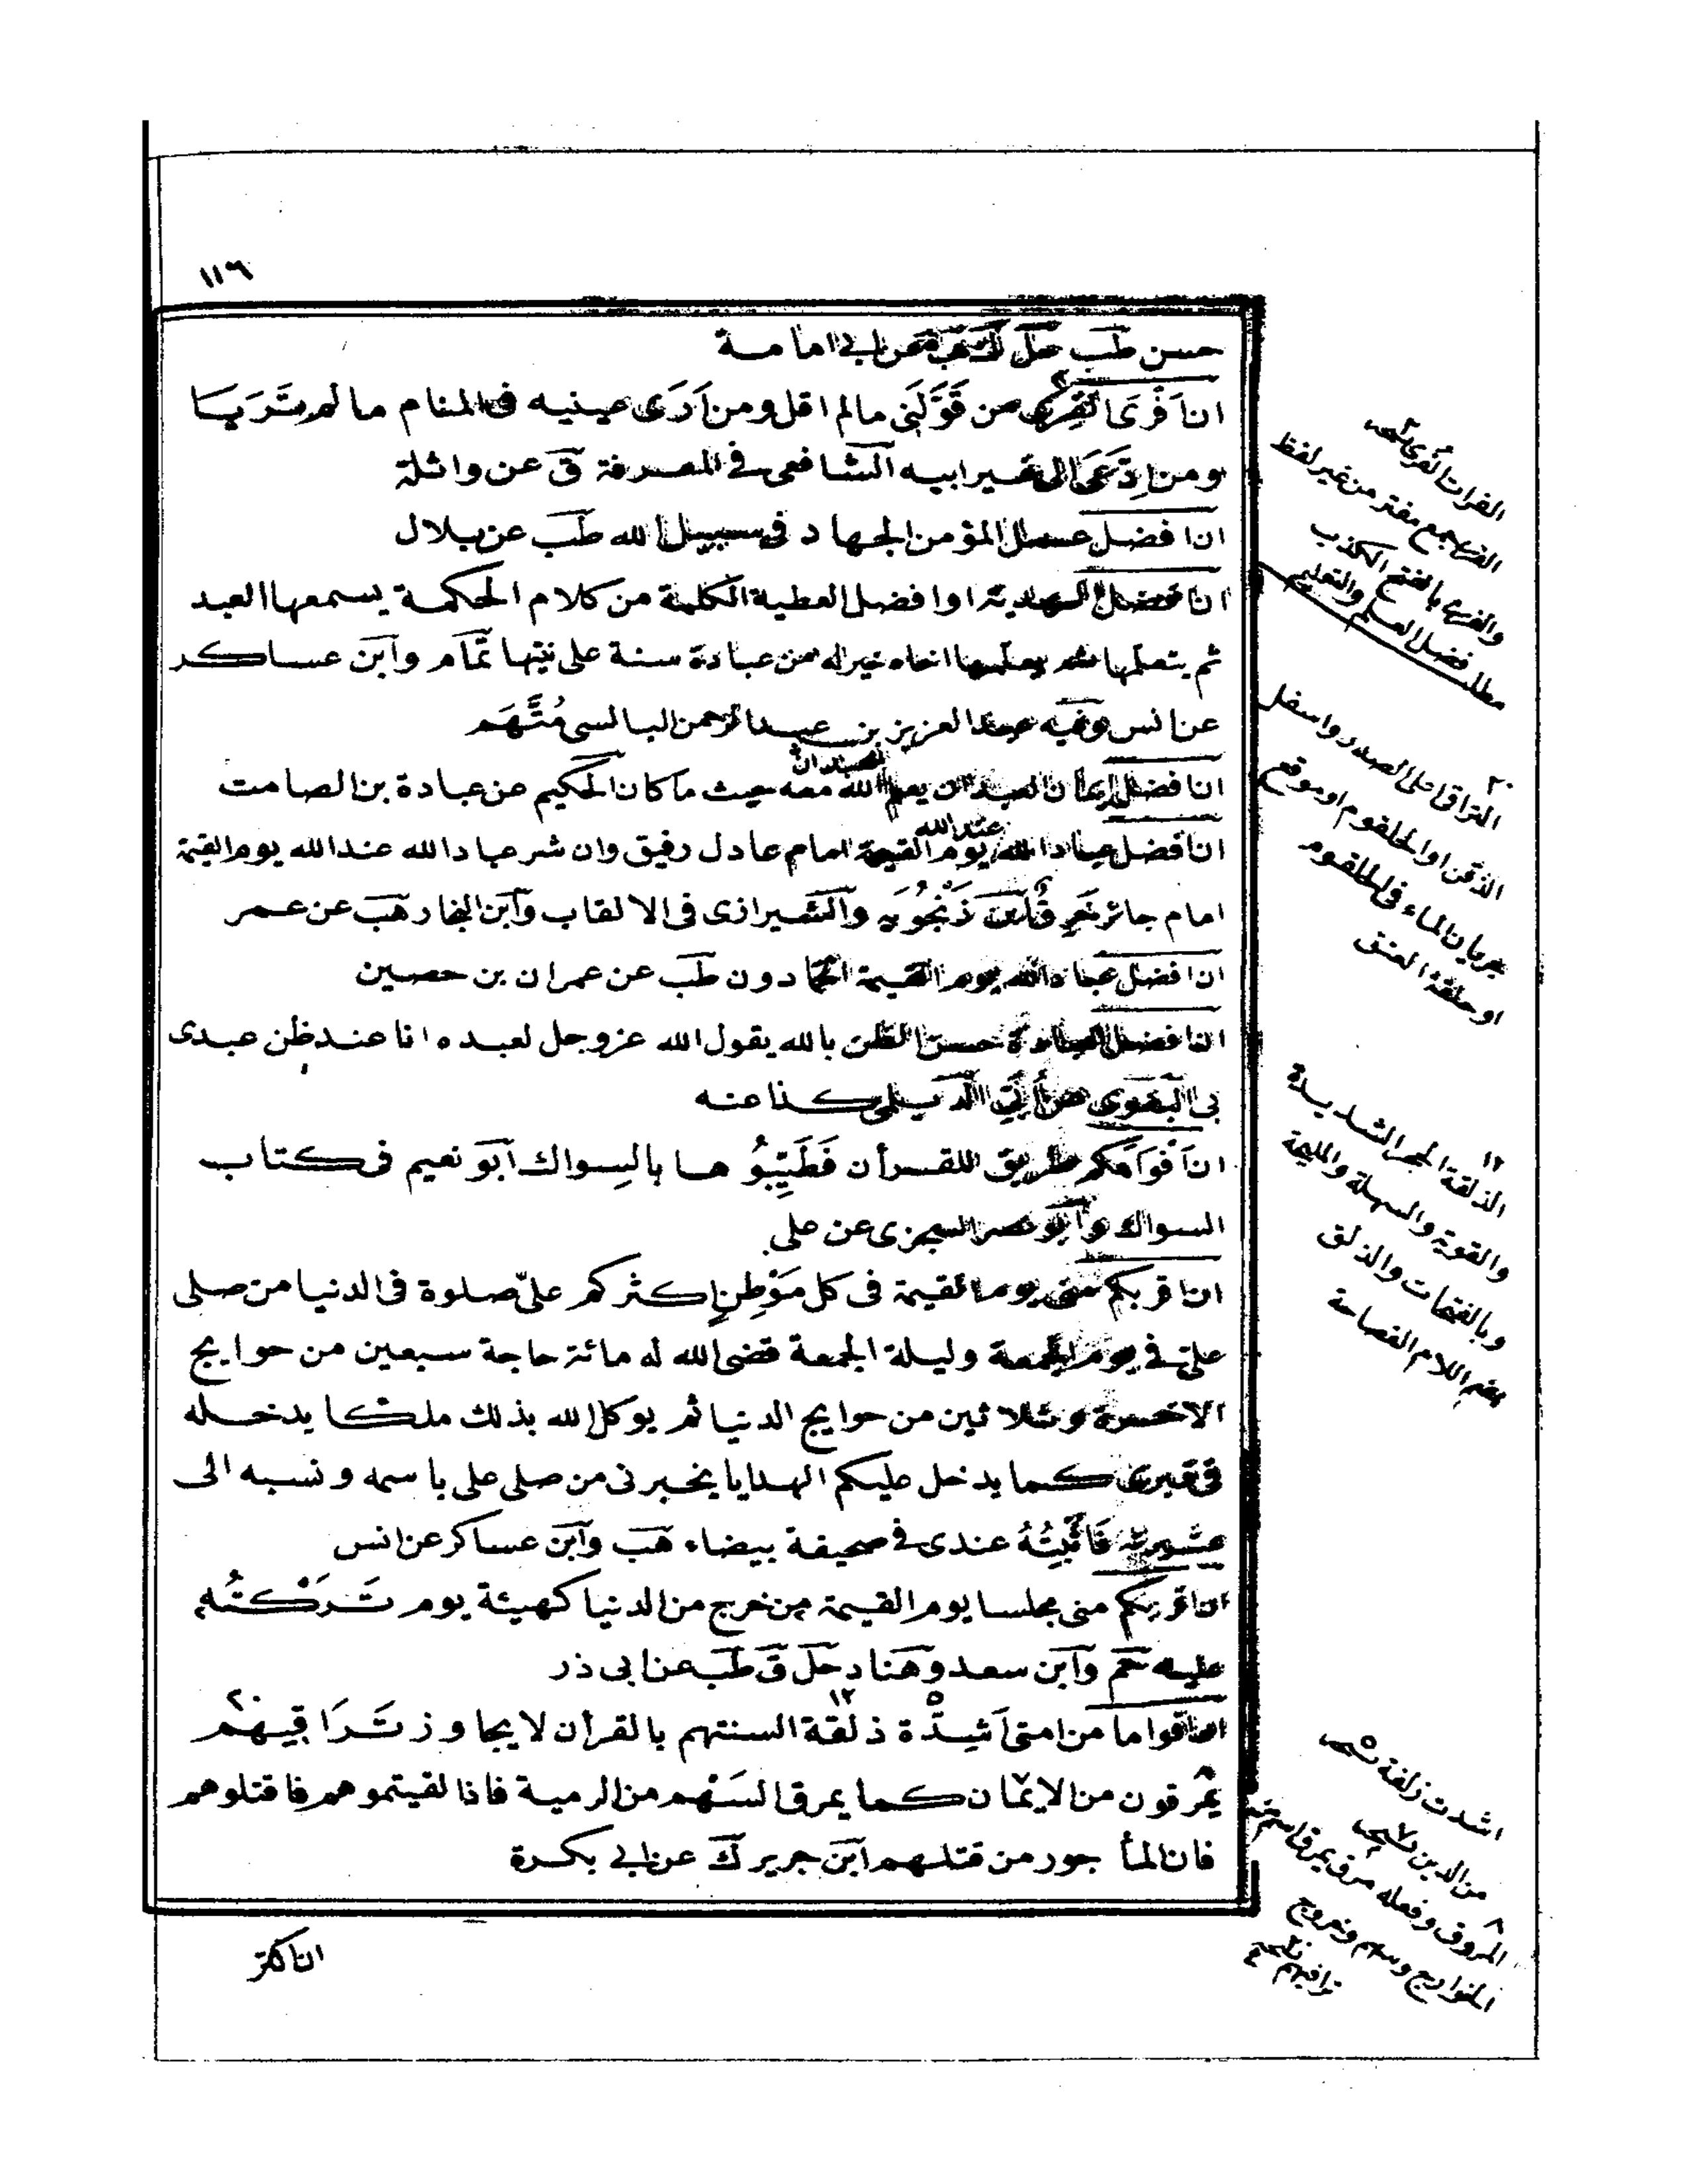 ١١٦
حسن طب حل ك هب عن ابى امامة
ان اَفْرَى الفِرَى من قَوَّلَنى مالم اقل ومن اَرَى عينيه فى المنام ما لم تَرَيَا
ومن اِدَّعَى الى غير ابيه الشافعى فى المعرفة ق عن واثلة
ان افضل عمل المؤمن الجهاد فى سبيل الله طب عن بلال
ان افضل الهدية او افضل العطية الكلمة من كلام الحكمة يسمعها العبد
ثم يتعلمها ثم يعلمها اخاه خير له من عبادة سنة على نيتها تمام وابن عساكر
عن انس وفيه عبد العزيز بن عبد الرحمن البالسى مُتَّهَم
ان افضل ايمان العبد ان يعلم العبد ان الله معه حيث ما كان الحكيم عن عبادة بن الصامت
ان افضل عباد الله عند الله يوم القيمة امام عادل رفيق وان شر عباد الله عند الله يوم القيمة
امام جائز خرق ابن زَنْجُوَيه والشيرازى فى الالقاب وابن النجار هب عن عمر
ان افضل عباد الله يوم القيمة الحمادون طب عن عمران بن حصين
ان افضل العبادة حسن الظن بالله يقول الله عزوجل لعبده انا عند ظن عبدى
بى البغوى عن اُبَىّ الديلمى كذا عنه
ان اَفْوَاهَكم طريق للقرأن فَطَيِّبُو ها بالسِواك ابو نعيم فى كتاب
السواك وابو نصر السجزى عن على
ان اقربكم منى يوم القيمة فى كل مَوْطِنٍ اكثركم علىّ صلوة فى الدنيا من صلى
علىّ فى يوم الجمعة وليلة الجمعة قضى الله له مائة حاجة سبعين من حوايج
الاخرة وثلاثين من حوايج الدنيا ثم يوكل الله بذلك ملكا يدخله
فى قبرى كما يدخل عليكم الهدايا يخبرنى من صلى على باسمه ونسبه الى
عشيرته فَاُثْبِتُهُ عندى فى صحيفة بيضاء هب وابن عساكر عن انس
ان اقربكم منى مجلسا يوم القيمة من خرج من الدنيا كهيئة يوم تَرَكْتُه
عليه حم وابن سعد وهناد حل ق طب عن ابى ذر
ان اقواما من امتى اَشِدَّة ذلقة السنتهم بالقرأن لا يجاوز تَرَاقِيهم
يمرقون من الايمان كما يمرق السَهْم من الرمية فاذا لقيتموهم فاقتلوهم
فان المأجور من قتلهم ابن جرير ك عن ابى بكرة
ان اكثر
والفرى بالفتح الكذب
مطلب فضل العلم والتعليم
٢٠
التراقى اعلى الصدر واسفل
الذقن او الحلقوم او موقع
جريان الماء فى الحلقوم
او حلقة العنق
١٢
والقوية والسهلة والمليحة
وبالفتحات والذلق
بضم اللام الفصاحة
من الدين نسخه
٨